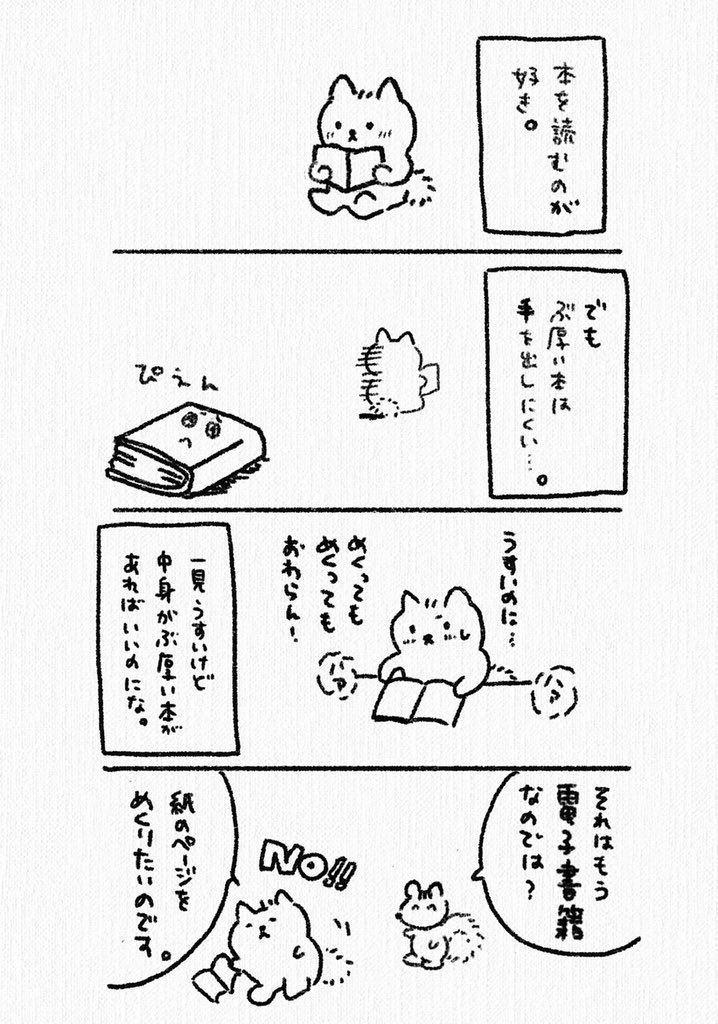 本を読むのが
好き。
でも
ぶ厚い本は
手を出しにくい…。
ぴえん
うすいのに…
めくっても
めくっても
おわらん！
ハァ
ハァ
一見うすいけど
中身がぶ厚い本が
あればいいのにな。
それはもう
電子書籍
なのでは？
NO!!
紙のページを
めくりたいのです。